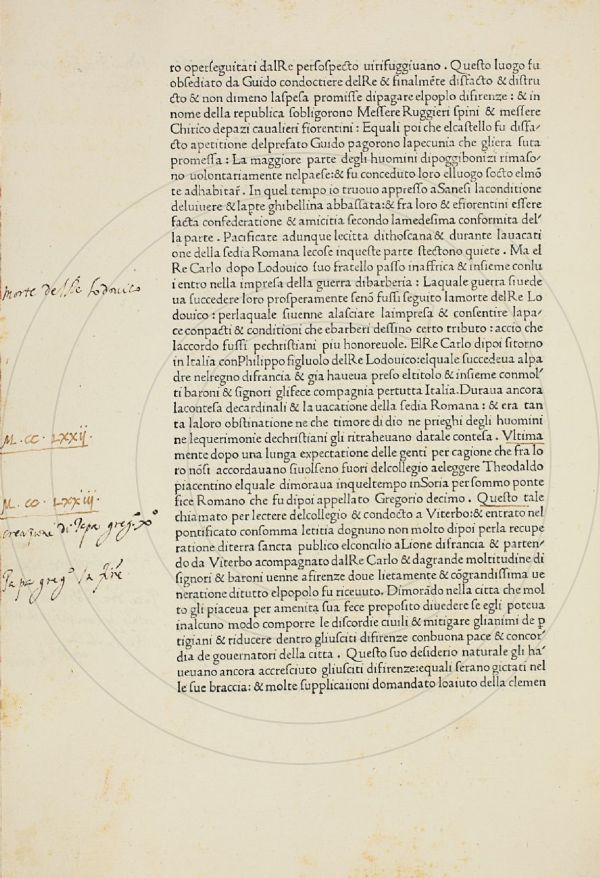 ro operseguitati dalRe persospecto uirifuggiuano . Questo luogo fu
obsediato da Guido condoctiere delRe & finalmēte disfacto & distru
cto & non dimeno laspesa promisse dipagare elpoplo difirenze : & in
nome della republica sobligorono Messere Ruggieri spini & messere
Chirico depazi caualieri fiorentini : Equali poi che elcastello fu diffa-
cto apetitione delprefato Guido pagorono lapecunia che gliera suta
promessa : La maggiore parte degli huomini dipoggibonizi rimaso-
no uolontariamente nelpaese:& fu conceduto loro elluogo socto elmō
te adhabitar . In quel tempo io truouo appresso aSanesi laconditione
deluiuere & lapte ghibellina abbassata:& fra loro & efiorentini essere
facta confederatione & amicitia secondo lamedesima conformita del-
la parte . Pacificate adunque lecitta dithoscana & durante lauacati
one della sedia Romana lecose inqueste parte stectono quiete . Ma el
Re Carlo dopo Lodouico suo fratello passo inaffrica & insieme conlu
i entro nella impresa della guerra dibarberia : Laquale guerra siuede
ua succedere loro prosperamente senō fussi seguito lamorte delRe Lo
douico : perlaquale siuenne alasciare laimpresa & consentire lapa-
ce conpacti & conditioni che ebarberi dessino certo tributo : accio che
laccordo fussi pechristiani piu honoreuole. ElRe Carlo dipoi sitorno
in Italia conPhilippo figluolo delRe Lodouico:elquale succedeua alpa
dre nelregno difrancia & gia haueua preso eltitolo & insieme conmol-
ti baroni & signori glifece compagnia pertutta Italia.Duraua ancora
lacontesa decardinali & la uacatione della sedia Romana : & era tan
ta laloro obstinatione ne che timore di dio ne prieghi degli huomini
ne lequerimonie dechristiani gli ritraheuano datale contesa . Vltima
mente dopo una lunga expectatione delle genti per cagione che fra lo
ro nōsi accordauano siuolseno fuori delcollegio aeleggere Theodaldo
piacentino elquale dimoraua inqueltempo inSoria per sommo ponte
fice Romano che fu dipoi appellato Gregorio decimo . Questo tale
chiamato per lectere delcollegio & condocto a Viterbo:& entrato nel
pontificato consomma letitia dognuno non molto dipoi perla recupe
ratione diterra sancta publico elconcilio aLione difrancia & parten-
do da Viterbo acompagnato dalRe Carlo & dagrande moltitudine di
signori & baroni uenne afirenze doue lietamente & cōgrandissima ue
neratione ditutto elpopolo fu riceuuto. Dimorādo nella citta che mol
to gli piaceua per amenita sua fece proposito diuedere se egli poteua
inalcuno modo comporre le discordie ciuili & mitigare glianimi de p
tigiani & riducere dentro gliusciti difirenze conbuona pace & concor-
dia de gouernatori della citta . Questo suo desiderio naturale gli ha-
ueuano ancora accresciuto gliusciti difirenze:equali serano gictati nel
le sue braccia: & molte supplicaiioni domandato loaiuto della clemen
morte del Re Lodouico
M. CC. LXXij.
M. CC. LXXiij.
creazione di Papa greg.o Xo
Papa greg.o In fire